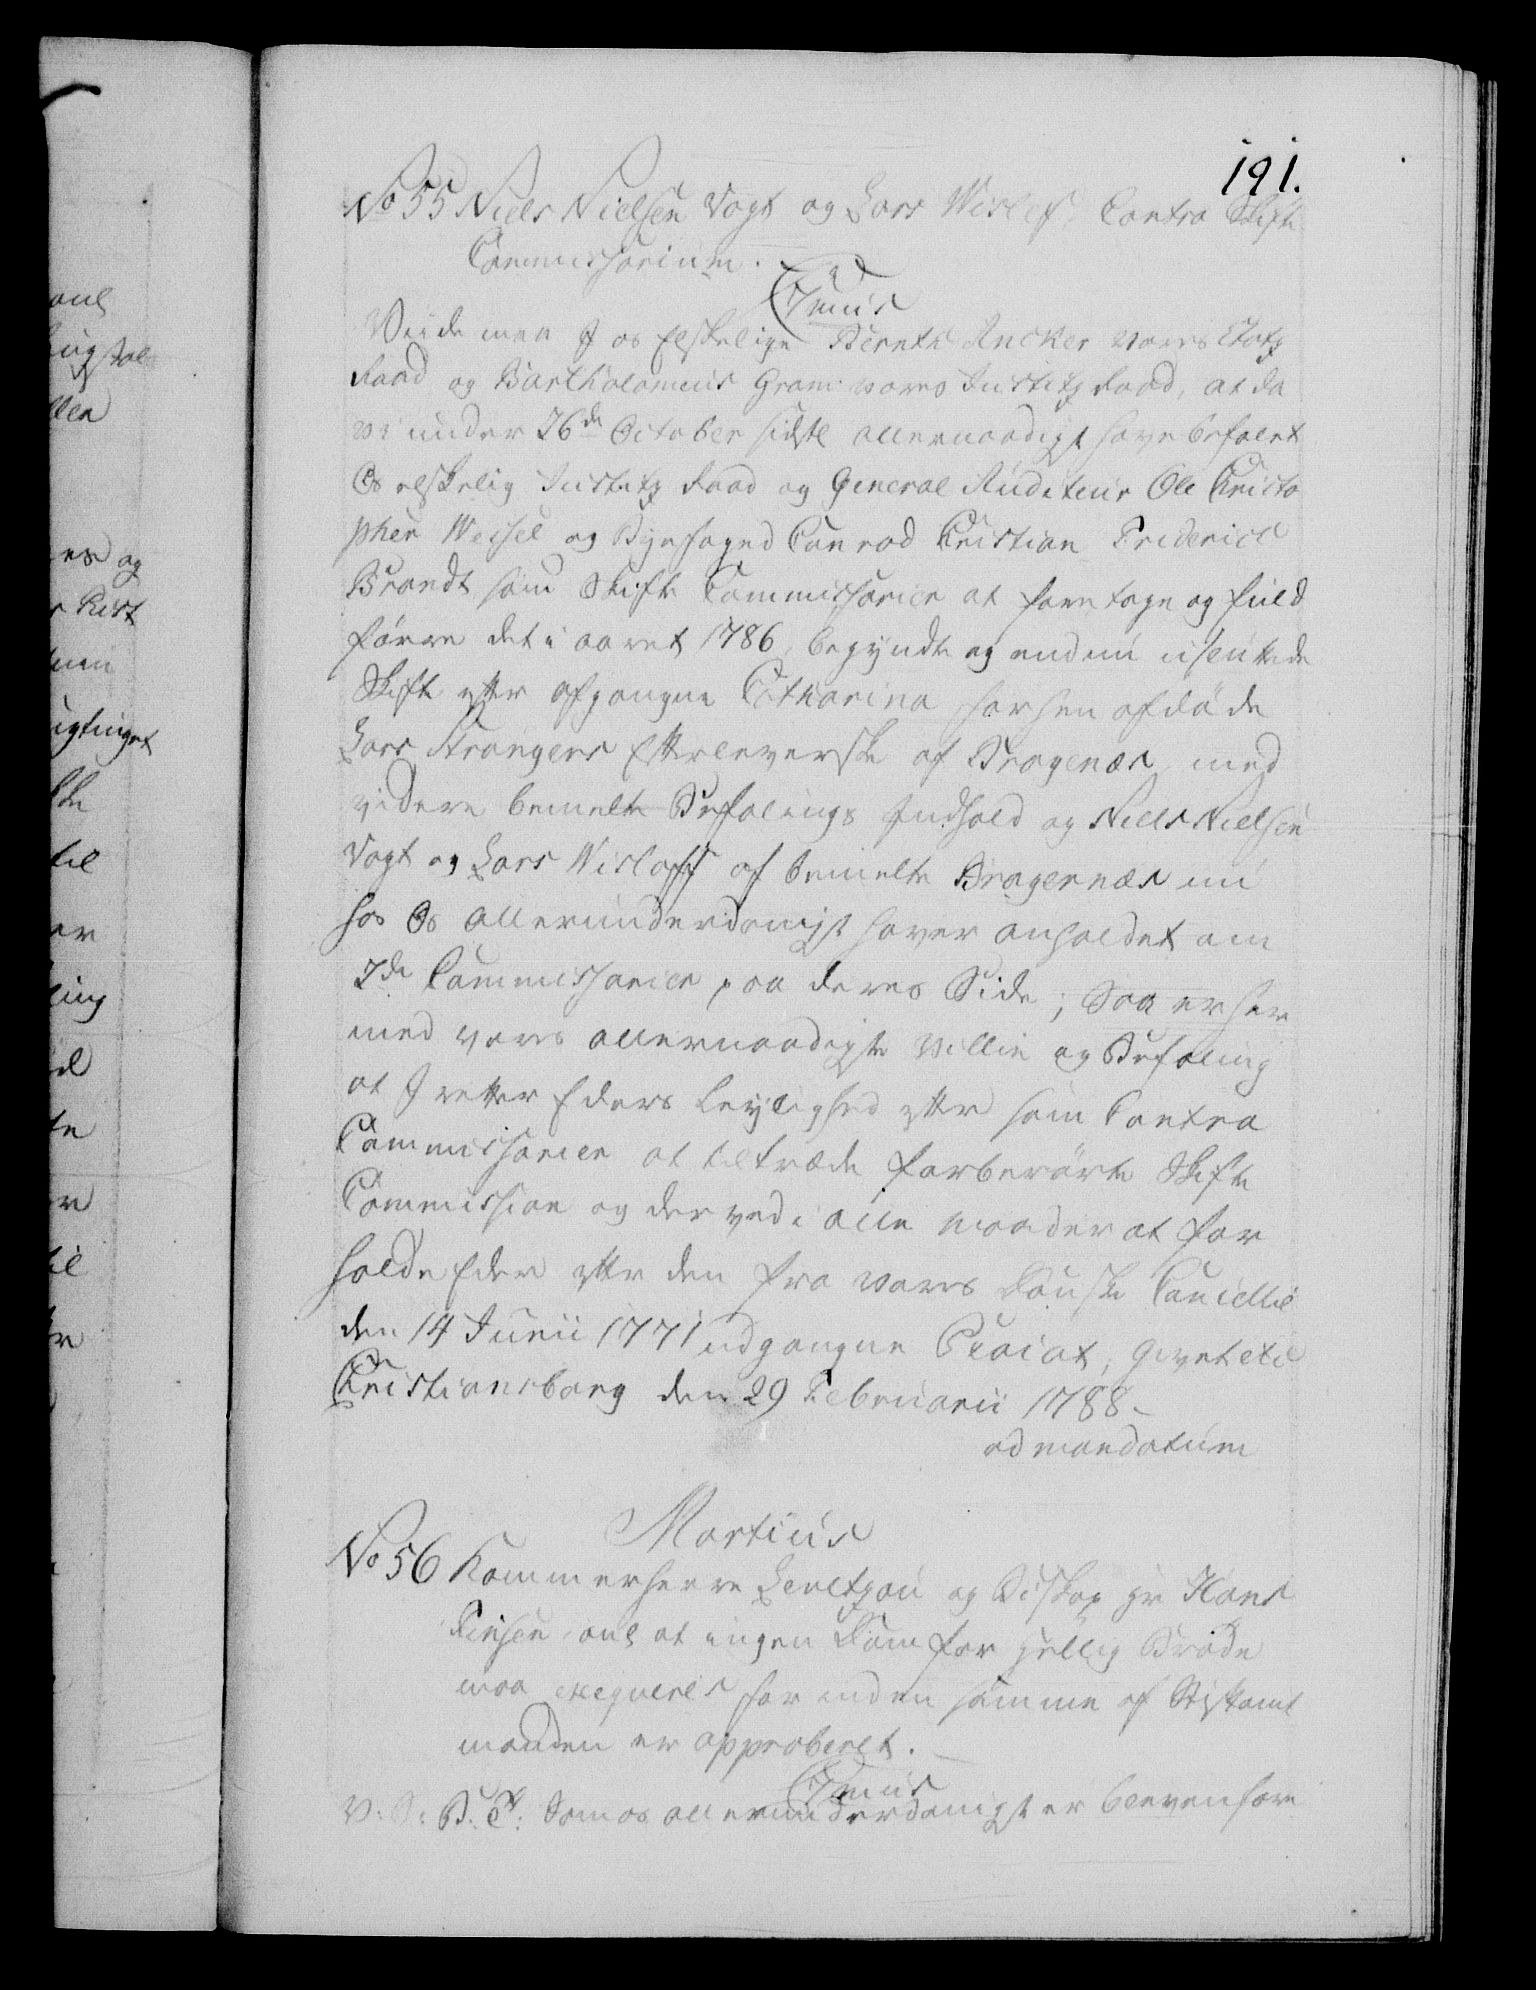 191.
No 55 Niels Nielsen Vogt og Lars Wisløf, Contra Skifte
Commissarium.
C7mus
Viide maa I os Elskelige Bernth Ancker vores Etatz
Raad og Bartholomeus Gram vores Justitz Raad, at da
vi under 26de October sidste allernaadigst have befalet
Os elskelig Justitz Raad og General Auditeur Ole Christo
pher Wessel og Byefoged Conrad Christian Friderich
Brandt som Skifte Commissarier at foretage og fuld
føre det i aaret 1786, begyndte og endnu usluttede
Skifte efter afgangne Catharina sal. afdøde
Lars Strangers Efterleverske af Bragenæs, med
videre bemelte Befalings Indhold og Niels Nielsen
Vogt og Lars Wisloff af bemelte Bragernæs nu
hos Os allerunderdanigst haver anholdet om
2de Commissarier paa deres Side; Saa er her
med vores allernaadigste Villie og Befaling
at I retter Eders Leylighed efter som Contra
Commissarier at tiltræde forberørte Skifte
Commission og derved i alle maader at for
holde Eder efter den fra vores Danske Cancellie
den 14 Junii 1771 udgangne Placat, Givet etc
Christiansborg den 29 Februarii 1788 -
ad mandatum
Martius
No 56 Kammerherre Levetzou og Biskop Hr Hans
Finsen ang at ingen Dom for Hellig Brøde
maa exeqveres før inden samme af Stiftamt
manden er approberet.
C7mus
V: S: B. T: Som os allerunderdanigst er bleven fore